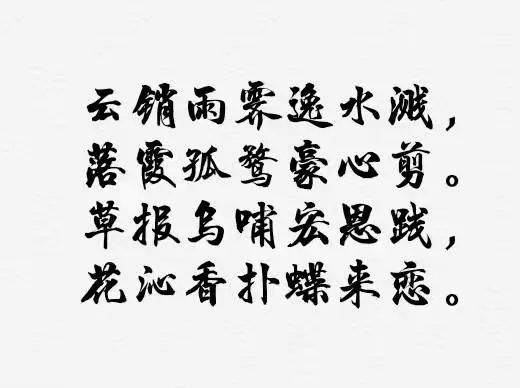 云销雨霁逸水溅，
落霞孤鹜豪心剪。
草报乌哺宏恩践，
花沁香扑蝶来恋。